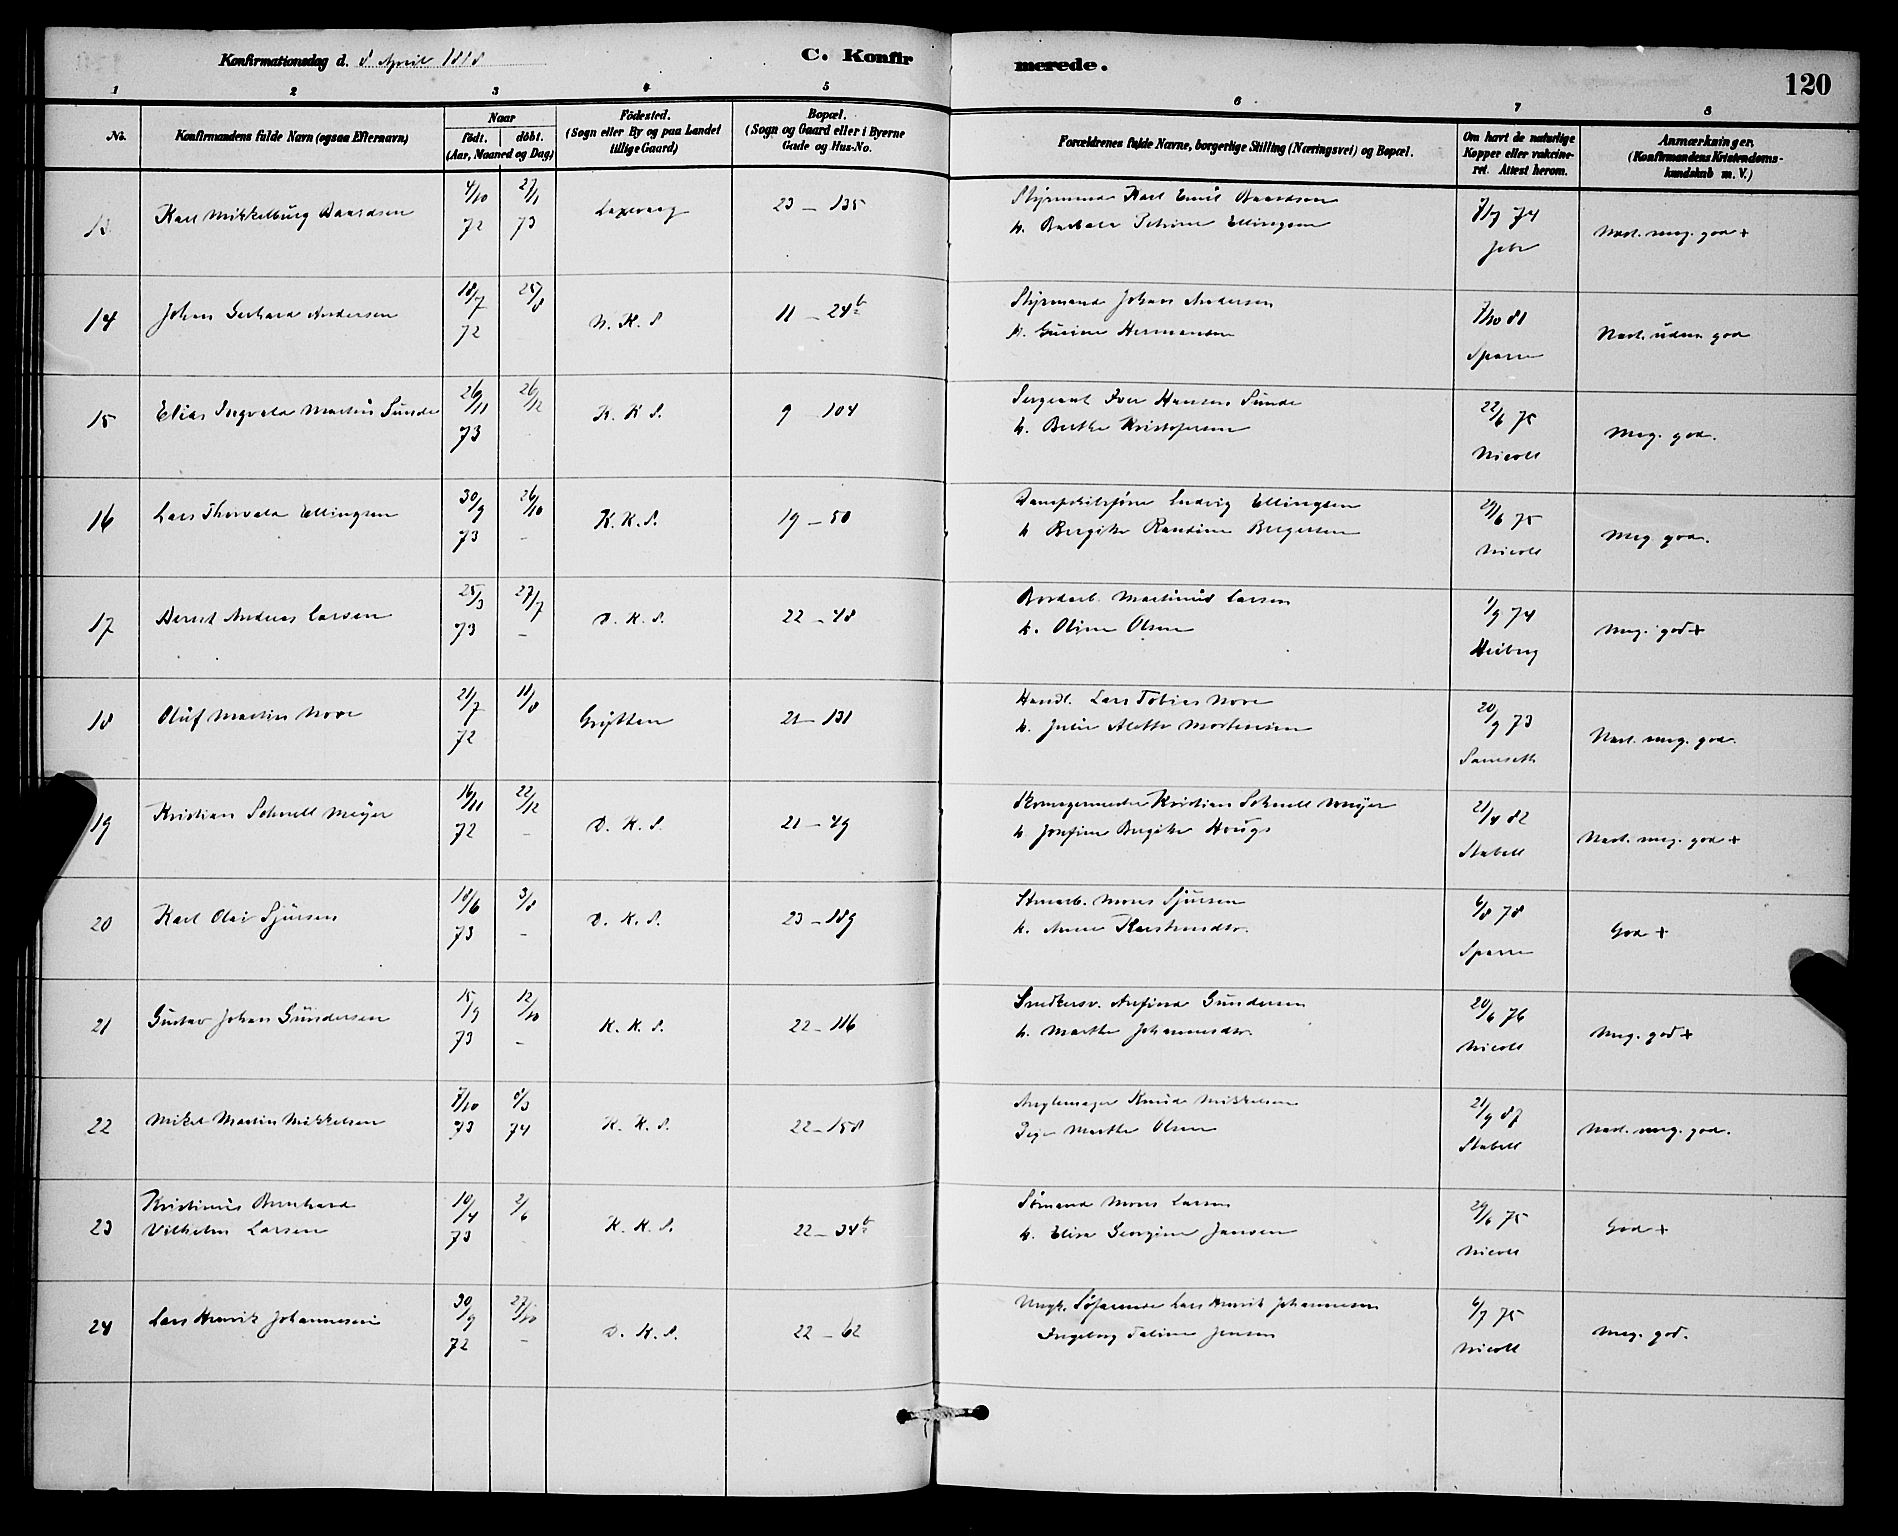 Konfirmationsdag d. 8 April 1888
C. Konfirmerede.
120
1 2 3 4 5 6 7 8
No.
Konfirmandens fulde Navn (ogsaa Efternavn)
Naar
födt. döbt.
(Aar, Maaned og Dag)
Födested.
(Sogn eller By og paa Landet
tillige Gaard)
Bopæl.
(Sogn og Gaard eller i Byerne
Gade og Hus-No.
Forældrenes fulde Navne, borgerlige Stilling (Næringsvei) og Bopæl.
Om havt de naturlige
Kopper eller vakcine-
ret. Attest herom.
Anmærkninger.
(Konfirmandens Kristendoms-
kundskab m. V.)
13 Karl Mikkelburg Baardsen 4/10 72 27/1 73 Laxevaag 23 – 135
Styrmand Karl Emil Baardsen
h. Barbara Petrine Ellingsen
7/7 74
Næst. meg. god +
14 Johan Gerhard Andersen 18/7 72 25/8 N. K. S. 11 – 24b
Styrmand Johan Andersen
h. Gurine Hermansen
7/10 81
Sparre
Næst. udm. god
15 Elias Ingvald Martin Sunde 26/11 73 26/12 K. K. S. 9 – 104
Sergeant Iver Hansen Sunde
h. Berthe Kristofersen
22/6 75
Nicoll
Meg. god.
16 Lars Thorvald Ellingsen 30/9 73 26/10 – K. K. S. 19 – 50
Dampskibsfører Ludvig Ellingsen
h. Bergitte Randine Bergersen
29/6 75
Nicoll
Meg. god.
17 Bernt Andreas Larsen 25/3 73 27/7 – D. K. S. 22 – 48
Bordarb. Martinus Larsen
h. Oline Olsen
1/9 74
Heiberg
Meg. god +
18 Oluf Martin Nore 21/7 72 11/8 Grytten 21 – 131
Handl. Lars Tobias Nore
h. Julie Alette Mortensen
20/9 73
Næst. meg. god.
19 Kristian Schnell Meyer 16/11 72 22/12 – D. K. S. 21 – 49
Skomagermester Kristian Schnell Meyer
h. Josefine Bergitte Houge
21/4 82
Stabell
Næst. meg. god +
20 Karl Olai Sjursen 18/6 73 3/8 – D. K. S. 23 – 189
Stenarb. Mons Sjursen
h. Anna
6/8 78
Sparre
God +
21 Gustav Johan Gundersen 15/9 73 12/10 – K. K. S. 22 – 116
Snedkersv. Arnfind Gundersen
h. Marthe Johannesdtr.
20/6 76
Nicoll
Meg. god +
22 Mikal Martin Mikkelsen 7/10 73 8/3 74 K. K. S. 22 – 158
Knud Mikkelsen
Pige Marthe Olsen
21/9 87
Stabell
Næst. meg. god.
23 Kristinius Bernhard
Vilhelm Larsen 10/4 73 2/6 – K. K. S. 22 – 34b
Sömand Mons Larsen
h. Elisa Georgine Jansen
29/6 75
Nicoll
God +
24 Lars Henrik Johannesen 30/9 72 27/10 – D. K. S. 22 – 62
Ungk. Søfarende Lars Henrik Johannesen
Ingeborg Taline Jensen
6/7 75
Nicoll
Meg. god.